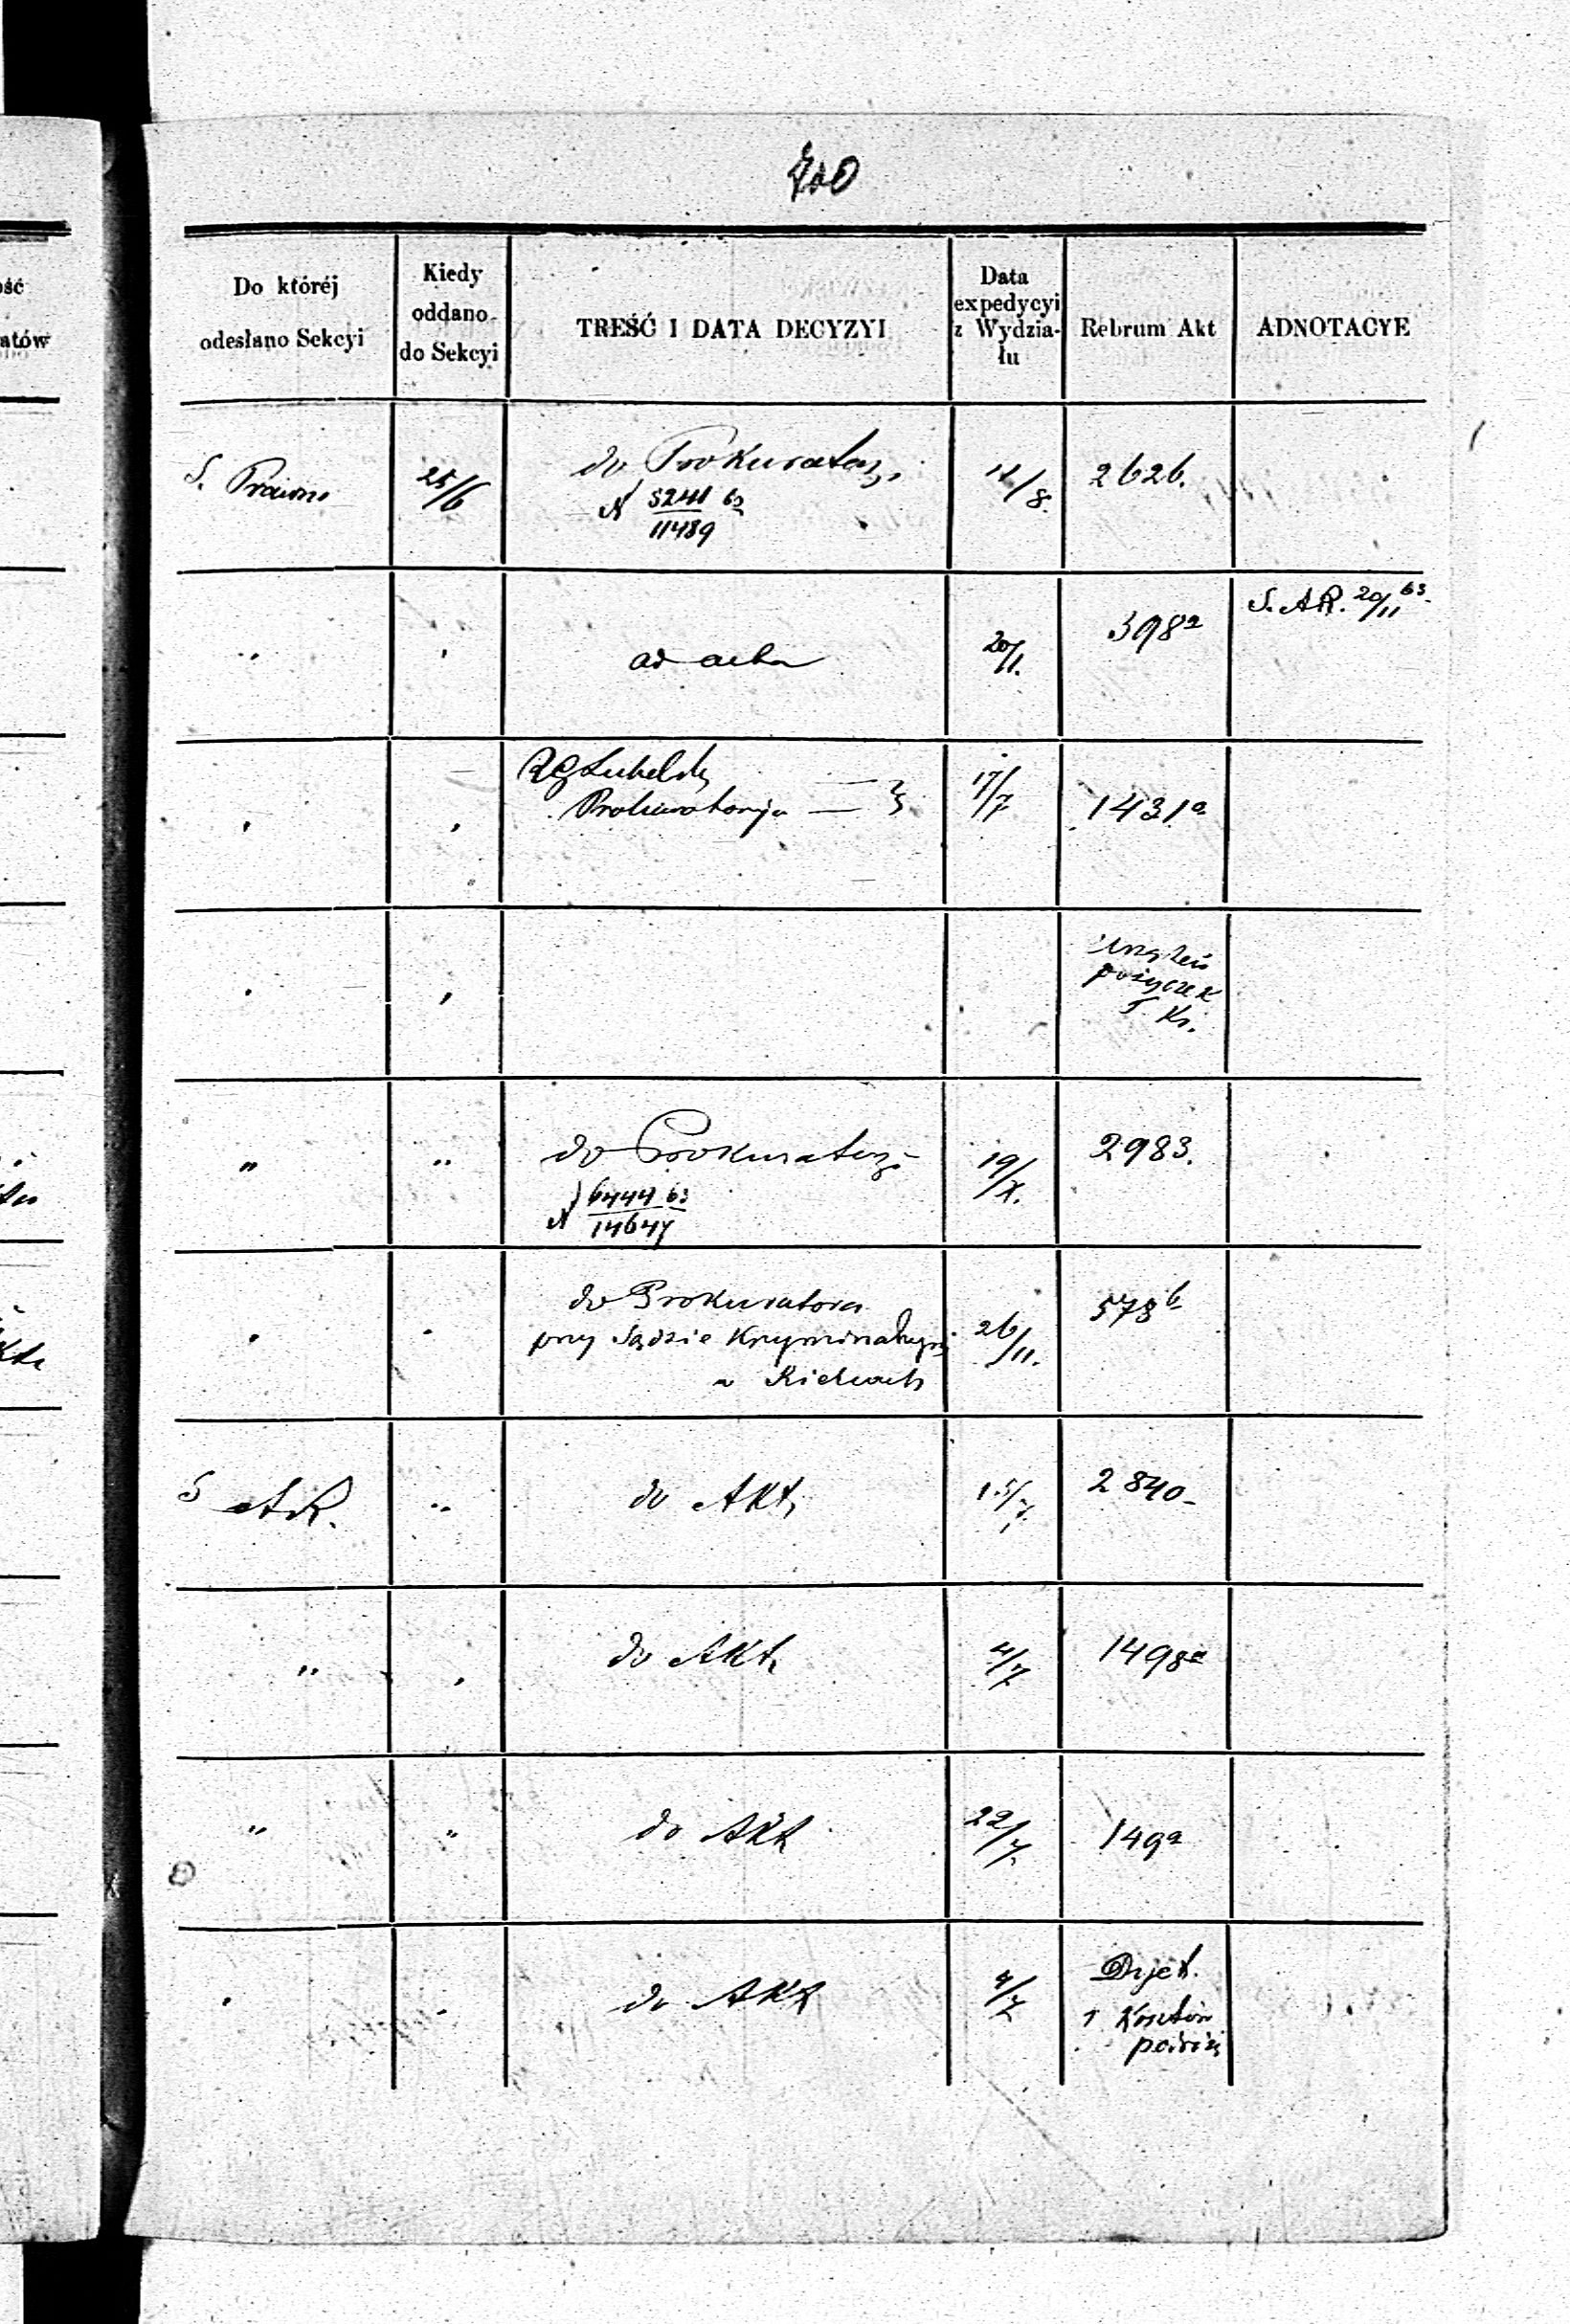 ość
atów
Do któréj
odesłano Sekcyi
Kiedy
oddano
do Sekcyi
TREŚĆ I DATA DECYZYI
Data
expedycyi
z Wydzia-
łu
Rebrum Akt
ADNOTACYE
S. Prawna
25/6
do Prokuratory
N 5241 63
11489
11/8.
2626.
"
"
ad acta
20/11.
398a
S. AR. 20/11 63.
"
"
RG Lubelsk
Prokuratorya
17/7
1431a
"
"
pożyczek
T. Kr.
"
"
do Prokuratoryi
N 6444 63
14647
19/X.
2983.
"
"
do Prokuratora
przy Sądzie Kryminalnym
w Kielcach
26/11.
573b
S AR.
"
do Akt
15/7.
2840-
"
"
do Akt
4/7
1498a
"
"
do Akt
22/7.
149a
"
"
do Akt
4/7
Dyet.
i Kosztów